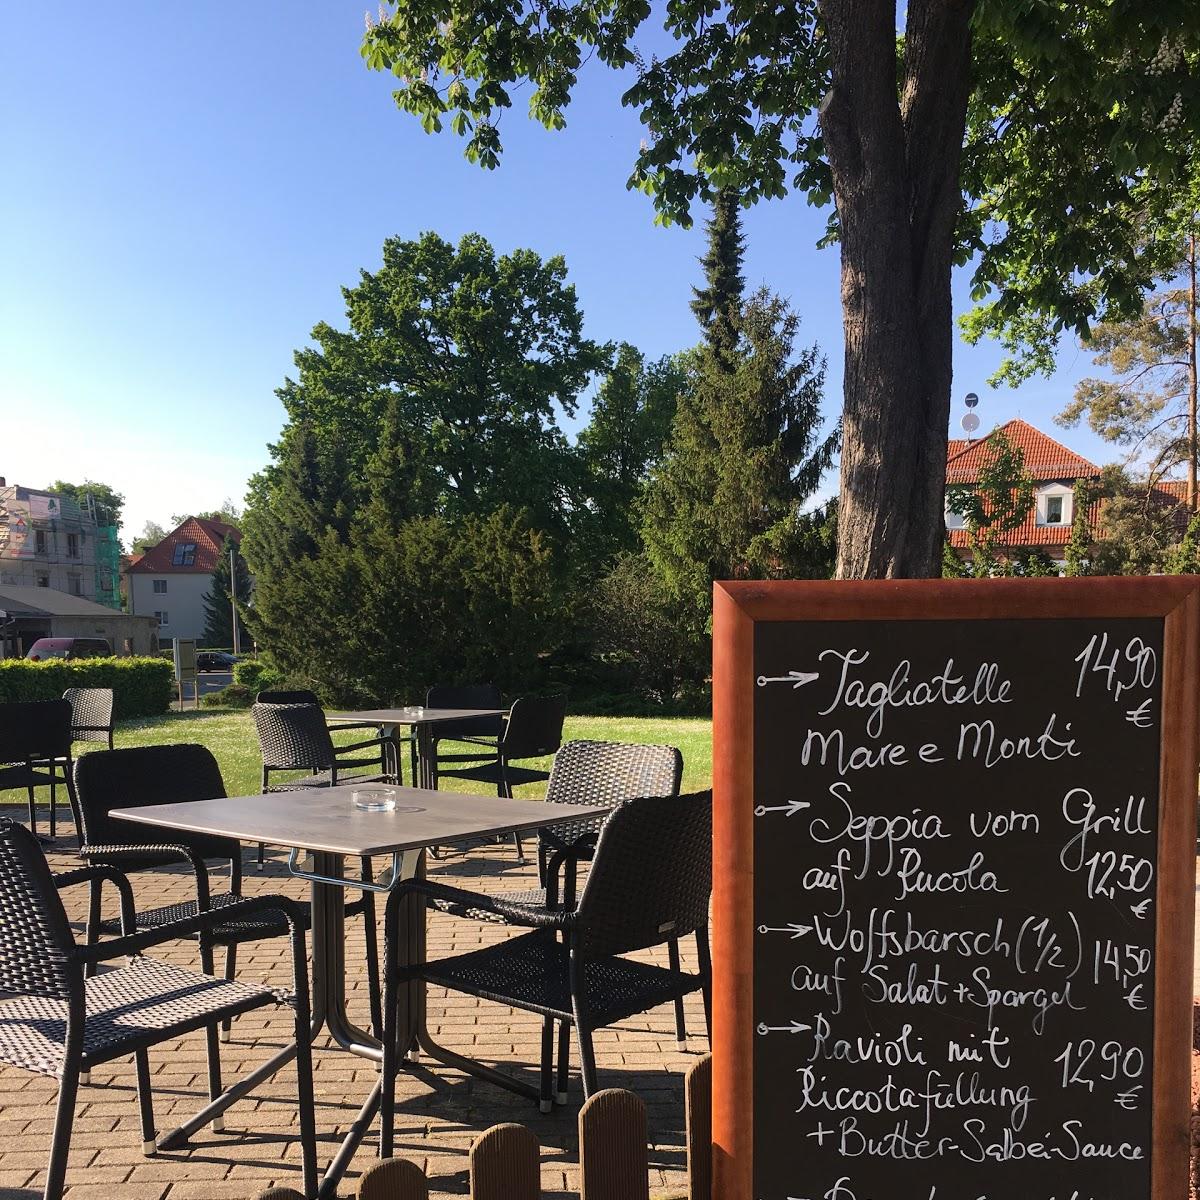 Tagliatelle 14,90 €
Mare e Monti
Seppia vom Grill
auf Rucola 12,50 €
Wolfsbarsch (1/2) 14,50 €
auf Salat + Spargel
Ravioli mit 12,90 €
Riccotafüllung
+ Butter-Salbei-Sauce